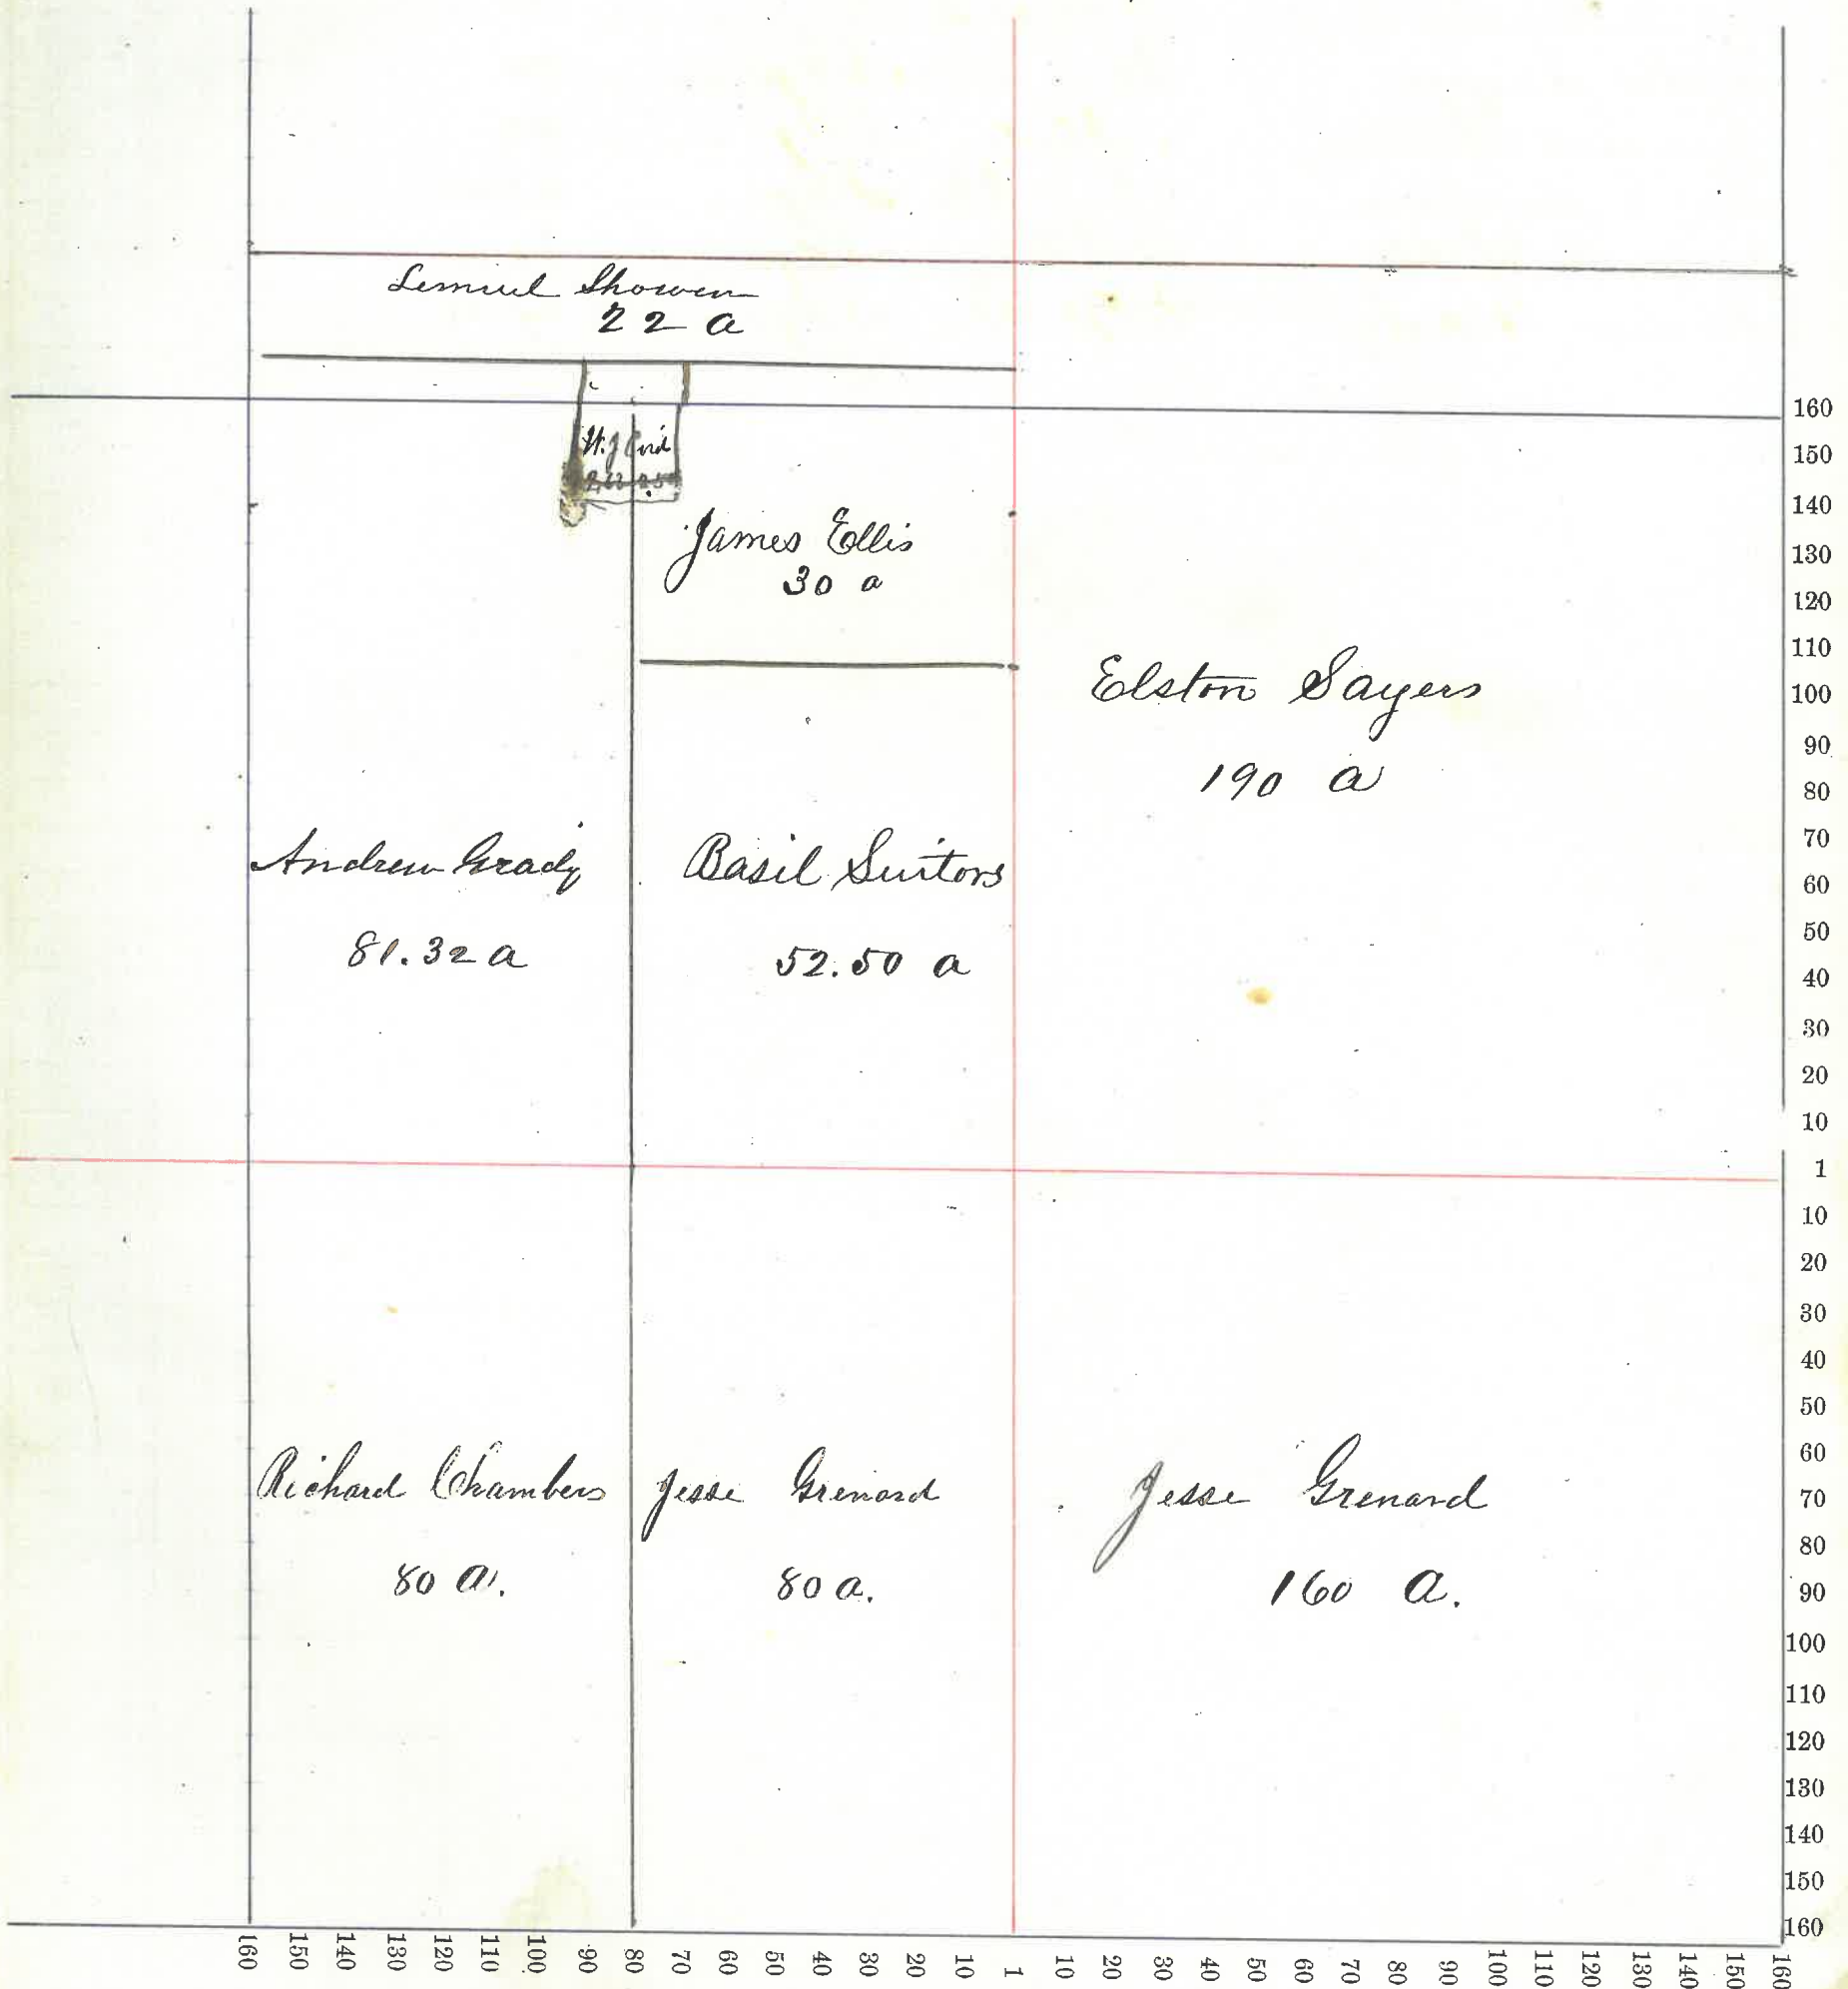 Lemuel Showen
22 a
W. J.
James Ellis
30 a
Elston Sayers
190 a
Andrew Grady
81.32 a
Basil Suitors
52.50 a
Richard Chambers
80 a.
Jesse Grenard
80 a.
Jesse Grenard
160 a.
160
150
140
130
120
110
100
90
80
70
60
50
40
30
20
10
1
10
20
30
40
50
60
70
80
90
100
110
120
130
140
150
160
160 150 140 130 120 110 100 90 80 70 60 50 40 30 20 10 1 10 20 30 40 50 60 70 80 90 100 110 120 130 140 150 160